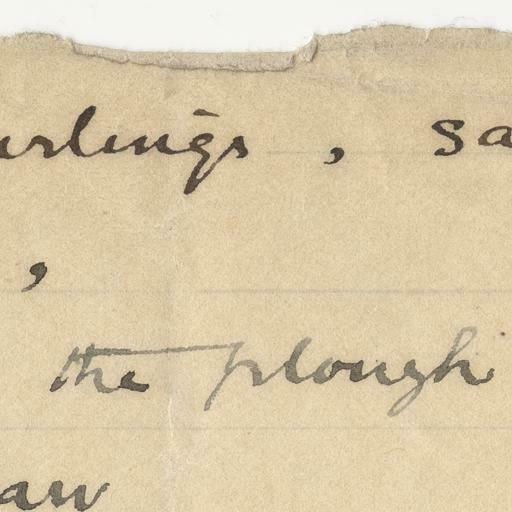 urlings, sa
,
the plough
aw